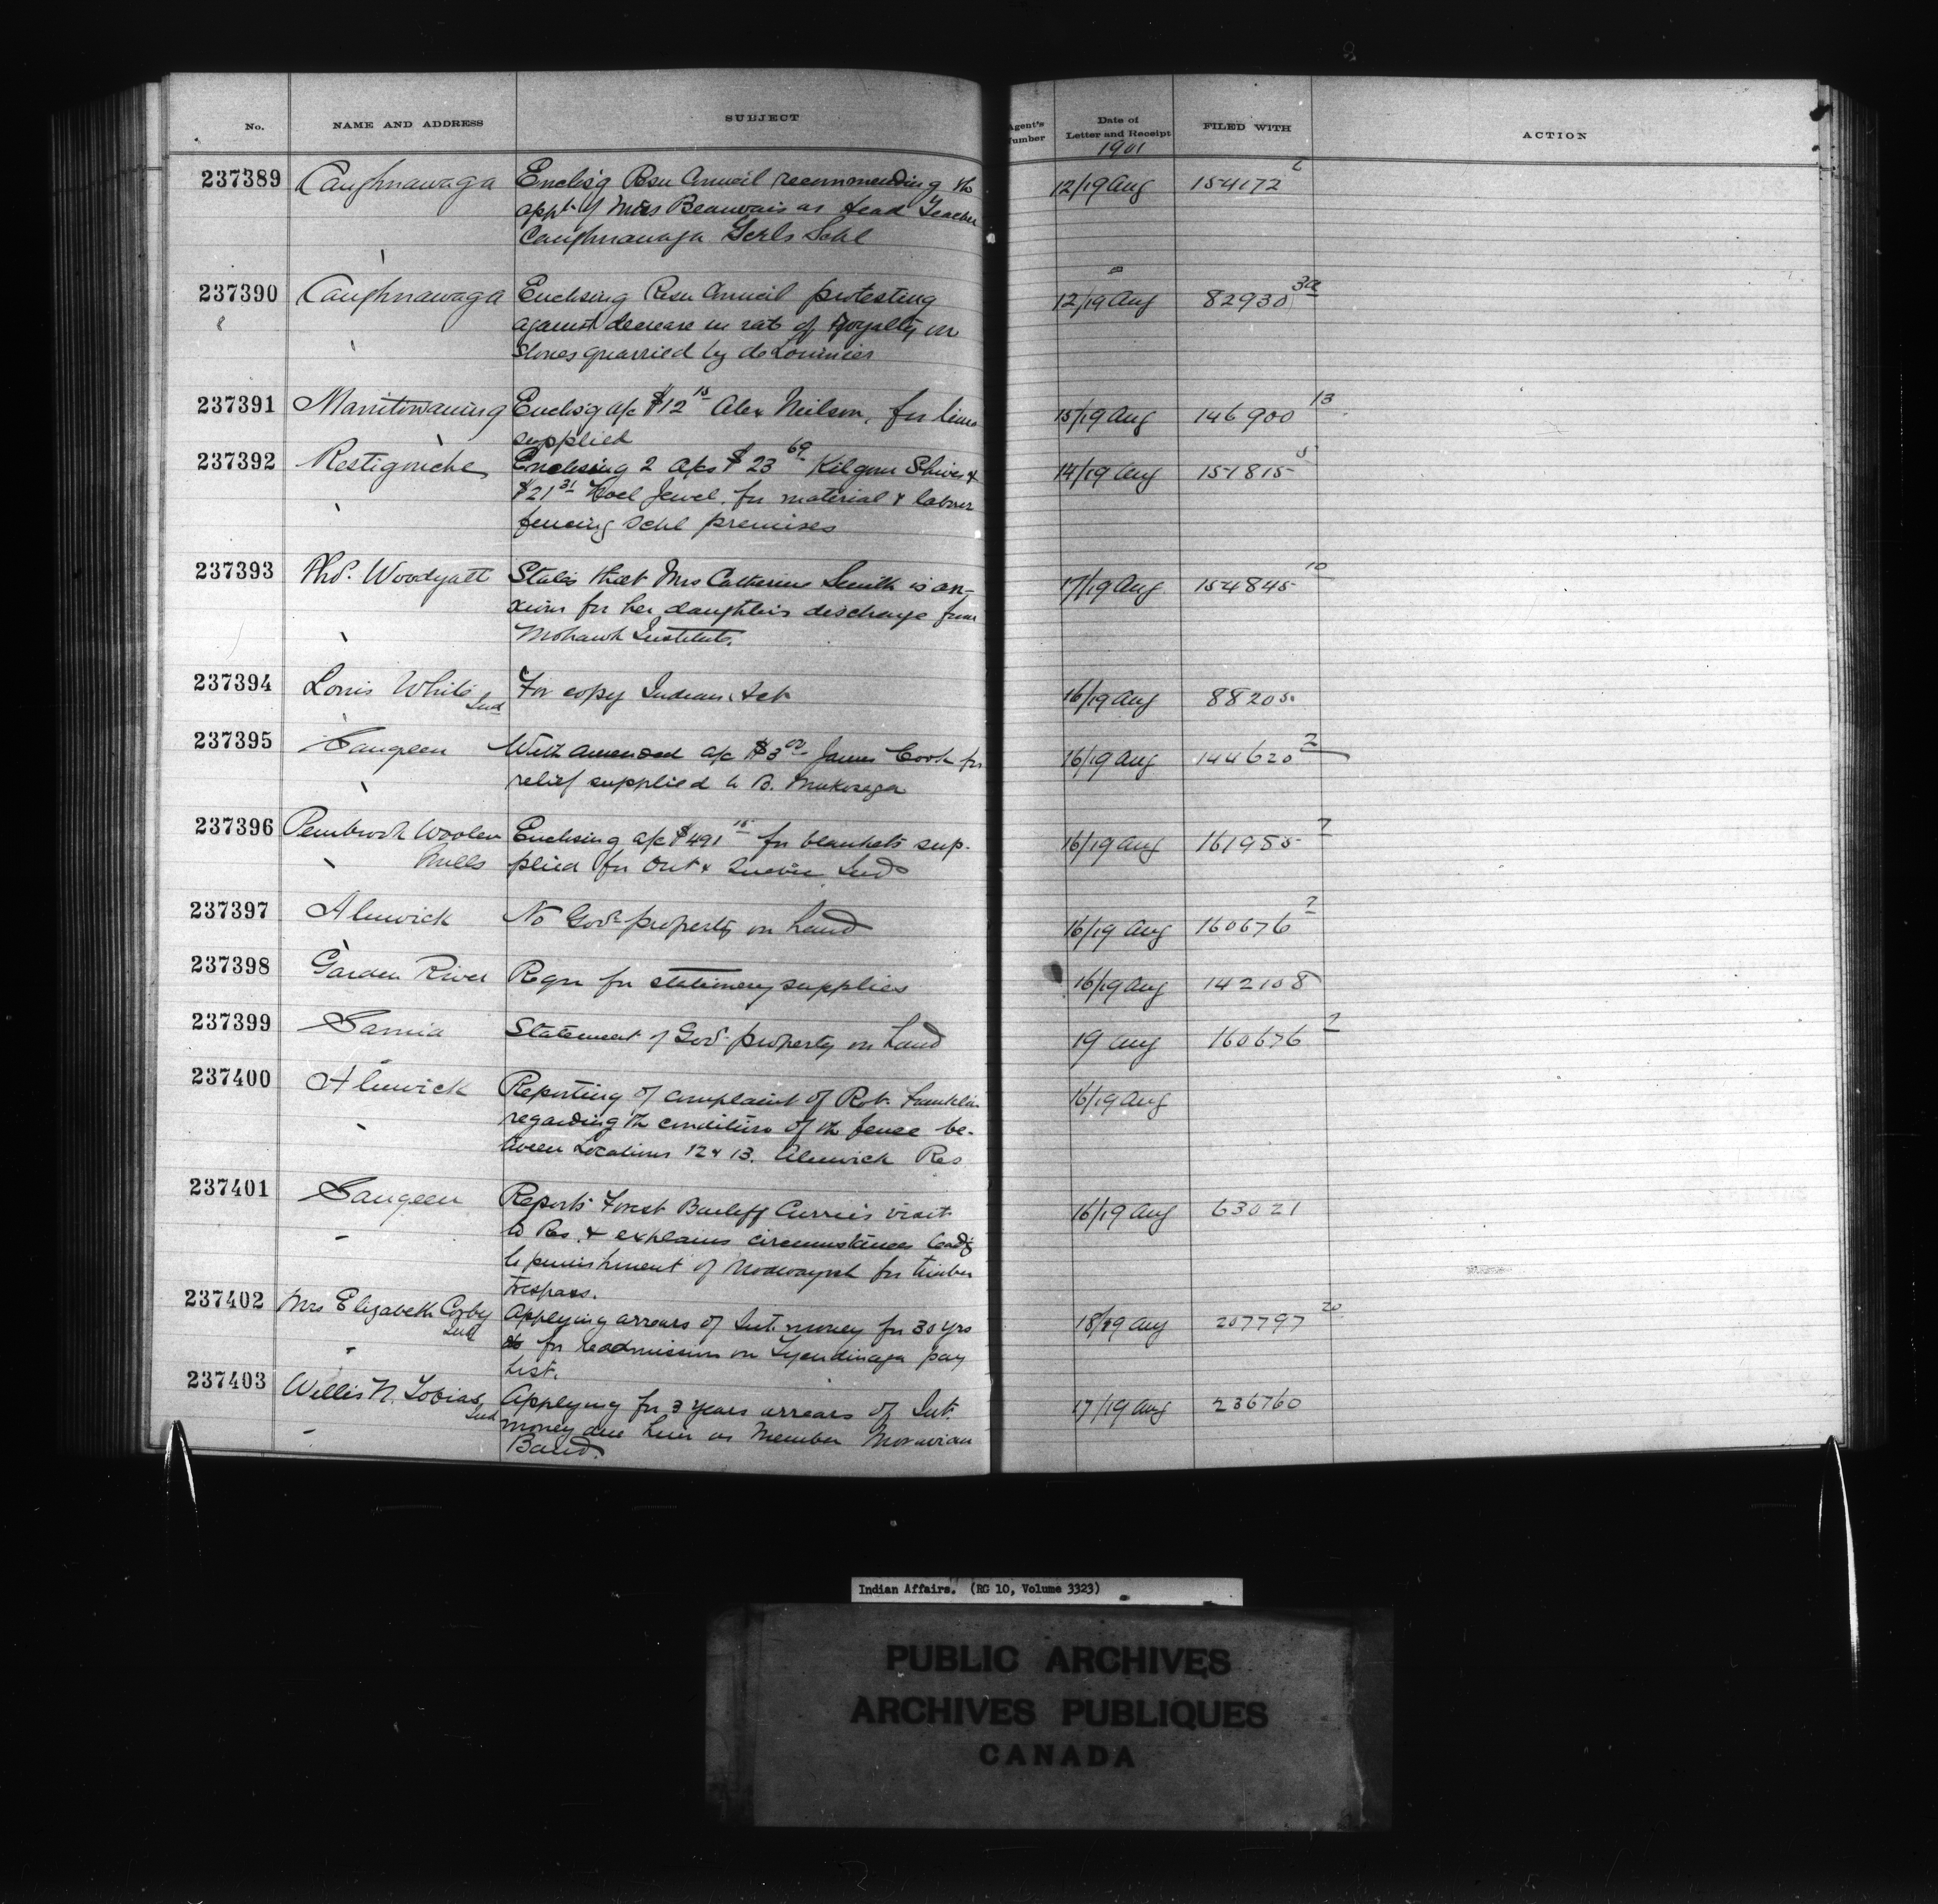 No. NAME AND ADDRESS SUBJECT Agent's Number Date of Letter and Receipt FILED WITH ACTION
1901
237389 Caughnawaga Enclos'g Resn Council recommending the 12/19 Aug 154172
appt of Miss Beauvais as Head Teacher
Caughnawaga Girls Schl
237390 Caughnawaga Enclosing Resn Council protesting 12/19 Aug 82930
against decrease in rate of Royalty on
stones quarried by deLorimier
237391 Manitowaning Enclos'g a/c $12 15 Alex Neilson, for lime 15/19 Aug 146900 13
supplied
237392 Restigouche Enclosing 2 a/cs $23 69 Kilgour Shives & 14/19 Aug 151815
$21 31 Noel Jewel, for material & labour
fencing Schl premises
237393 Thos. Woodyatt States that Mrs Catherine Smith is an- 17/19 Aug 154845 10
xious for her daughters discharge from
Mohawk Institute.
237394 Louis White For copy Indian Act 16/19 Aug 88205
Ind
237395 Saugeen With amended a/c $3 00 James Cook for 16/19 Aug 144620 2
relief supplied to B.
237396 Pembrook Woolen Enclosing a/c $491 for blankets sup- 16/19 Aug 161985
Mills plied for Ont & Quebec Inds
237397 Alnwick No Govt property on hand 16/19 Aug 160676 2
237398 Garden River Reqn for stationery supplies 16/19 Aug 142108
237399 Sarnia Statement of Govt property on hand 19 Aug 160676 2
237400 Alnwick Reporting of complaint of Robt Franklin 16/19 Aug
regarding the condition of the fence be-
tween Locations 12 & 13. Alnwick Res
237401 Saugeen Reports Forest Bailiff Currie's visit 16/19 Aug 63021
to Res. & explains circumstances leadg
to punishment of for timber
trespass.
237402 Mrs Elizabeth Corby Applying arrears of Int. money for 30 yrs 18/19 Aug 207797 20
Ind for readmission on Tyendinaga pay
List.
237403 Willis N. Tobias Applying for 3 years arrears of Int. 17/19 Aug 236760
Ind money due him as Member Moravian
Band.
Indian Affairs. (RG 10, Volume 3323)
PUBLIC ARCHIVES
ARCHIVES PUBLIQUES
CANADA